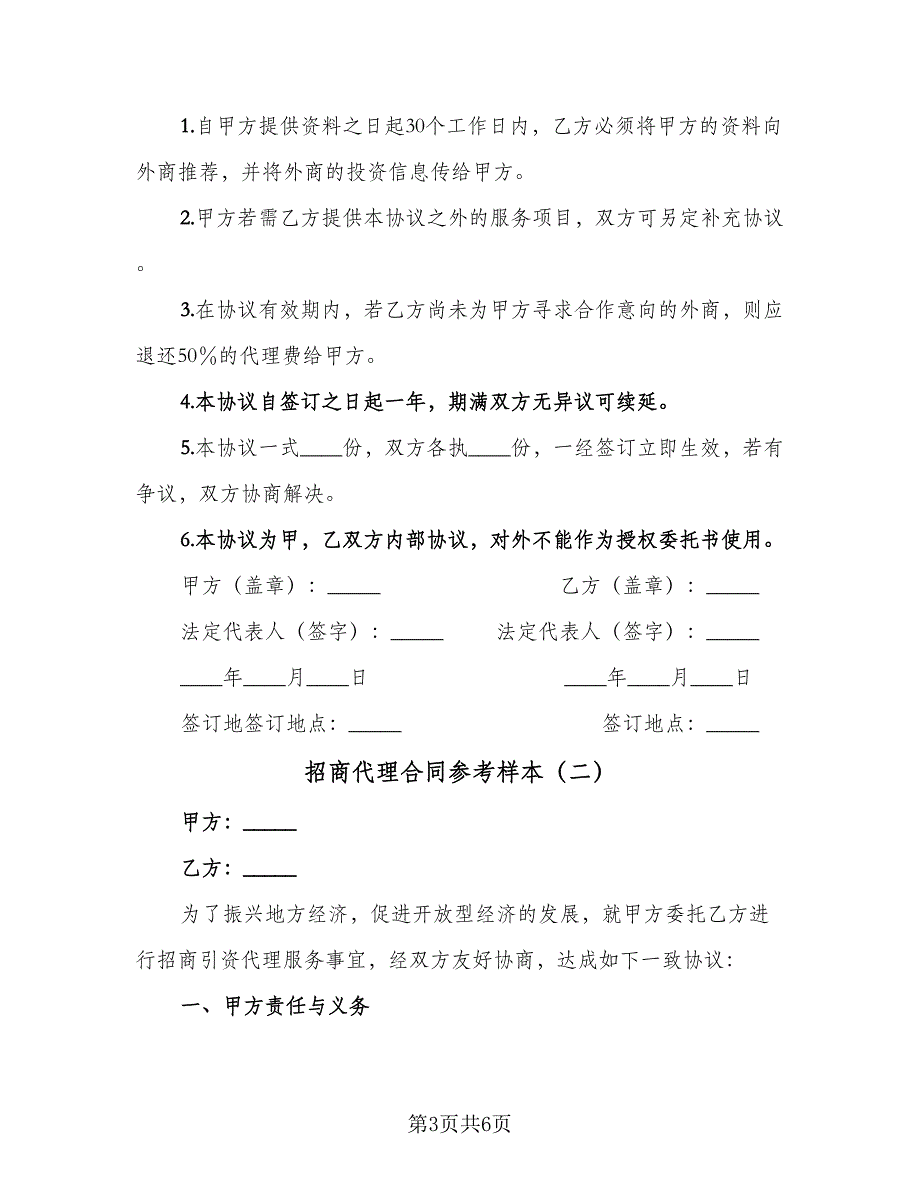 1.自甲方提供资料之日起30个工作日内，乙方必须将甲方的资料向
外商推荐，并将外商的投资信息传给甲方。
2.甲方若需乙方提供本协议之外的服务项目，双方可另定补充协议
。
3.在协议有效期内，若乙方尚未为甲方寻求合作意向的外商，则应
退还50％的代理费给甲方。
4.本协议自签订之日起一年，期满双方无异议可续延。
5.本协议一式____份，双方各执____份，一经签订立即生效，若有
争议，双方协商解决。
6.本协议为甲，乙双方内部协议，对外不能作为授权委托书使用。
甲方（盖章）：_____ 乙方（盖章）：_____
法定代表人（签字）：_____ 法定代表人（签字）：_____
____年____月____日 ____年____月____日
签订地签订地点：_____ 签订地点：_____
招商代理合同参考样本（二）
甲方：_____
乙方：_____
为了振兴地方经济，促进开放型经济的发展，就甲方委托乙方进
行招商引资代理服务事宜，经双方友好协商，达成如下一致协议：
一、甲方责任与义务
第3页共6页